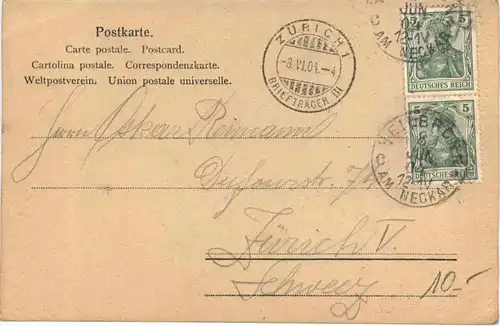 Postkarte.
Carte postale. Postcard.
Cartolina postale. Correspondenzkarte.
Weltpostverein. Union postale universelle.
ZÜRICH 1
-3.VI.04.-4
BRIEFTRÄGER III
JUN
04
12-1V
AM NECKAR
5
DEUTSCHES REICH
5
DEUTSCHES REICH
JUN
04
12-1V
AM NECKAR
Herrn Oskar Reimann
Dufourstr.
Zürich V.
Schweiz
10-